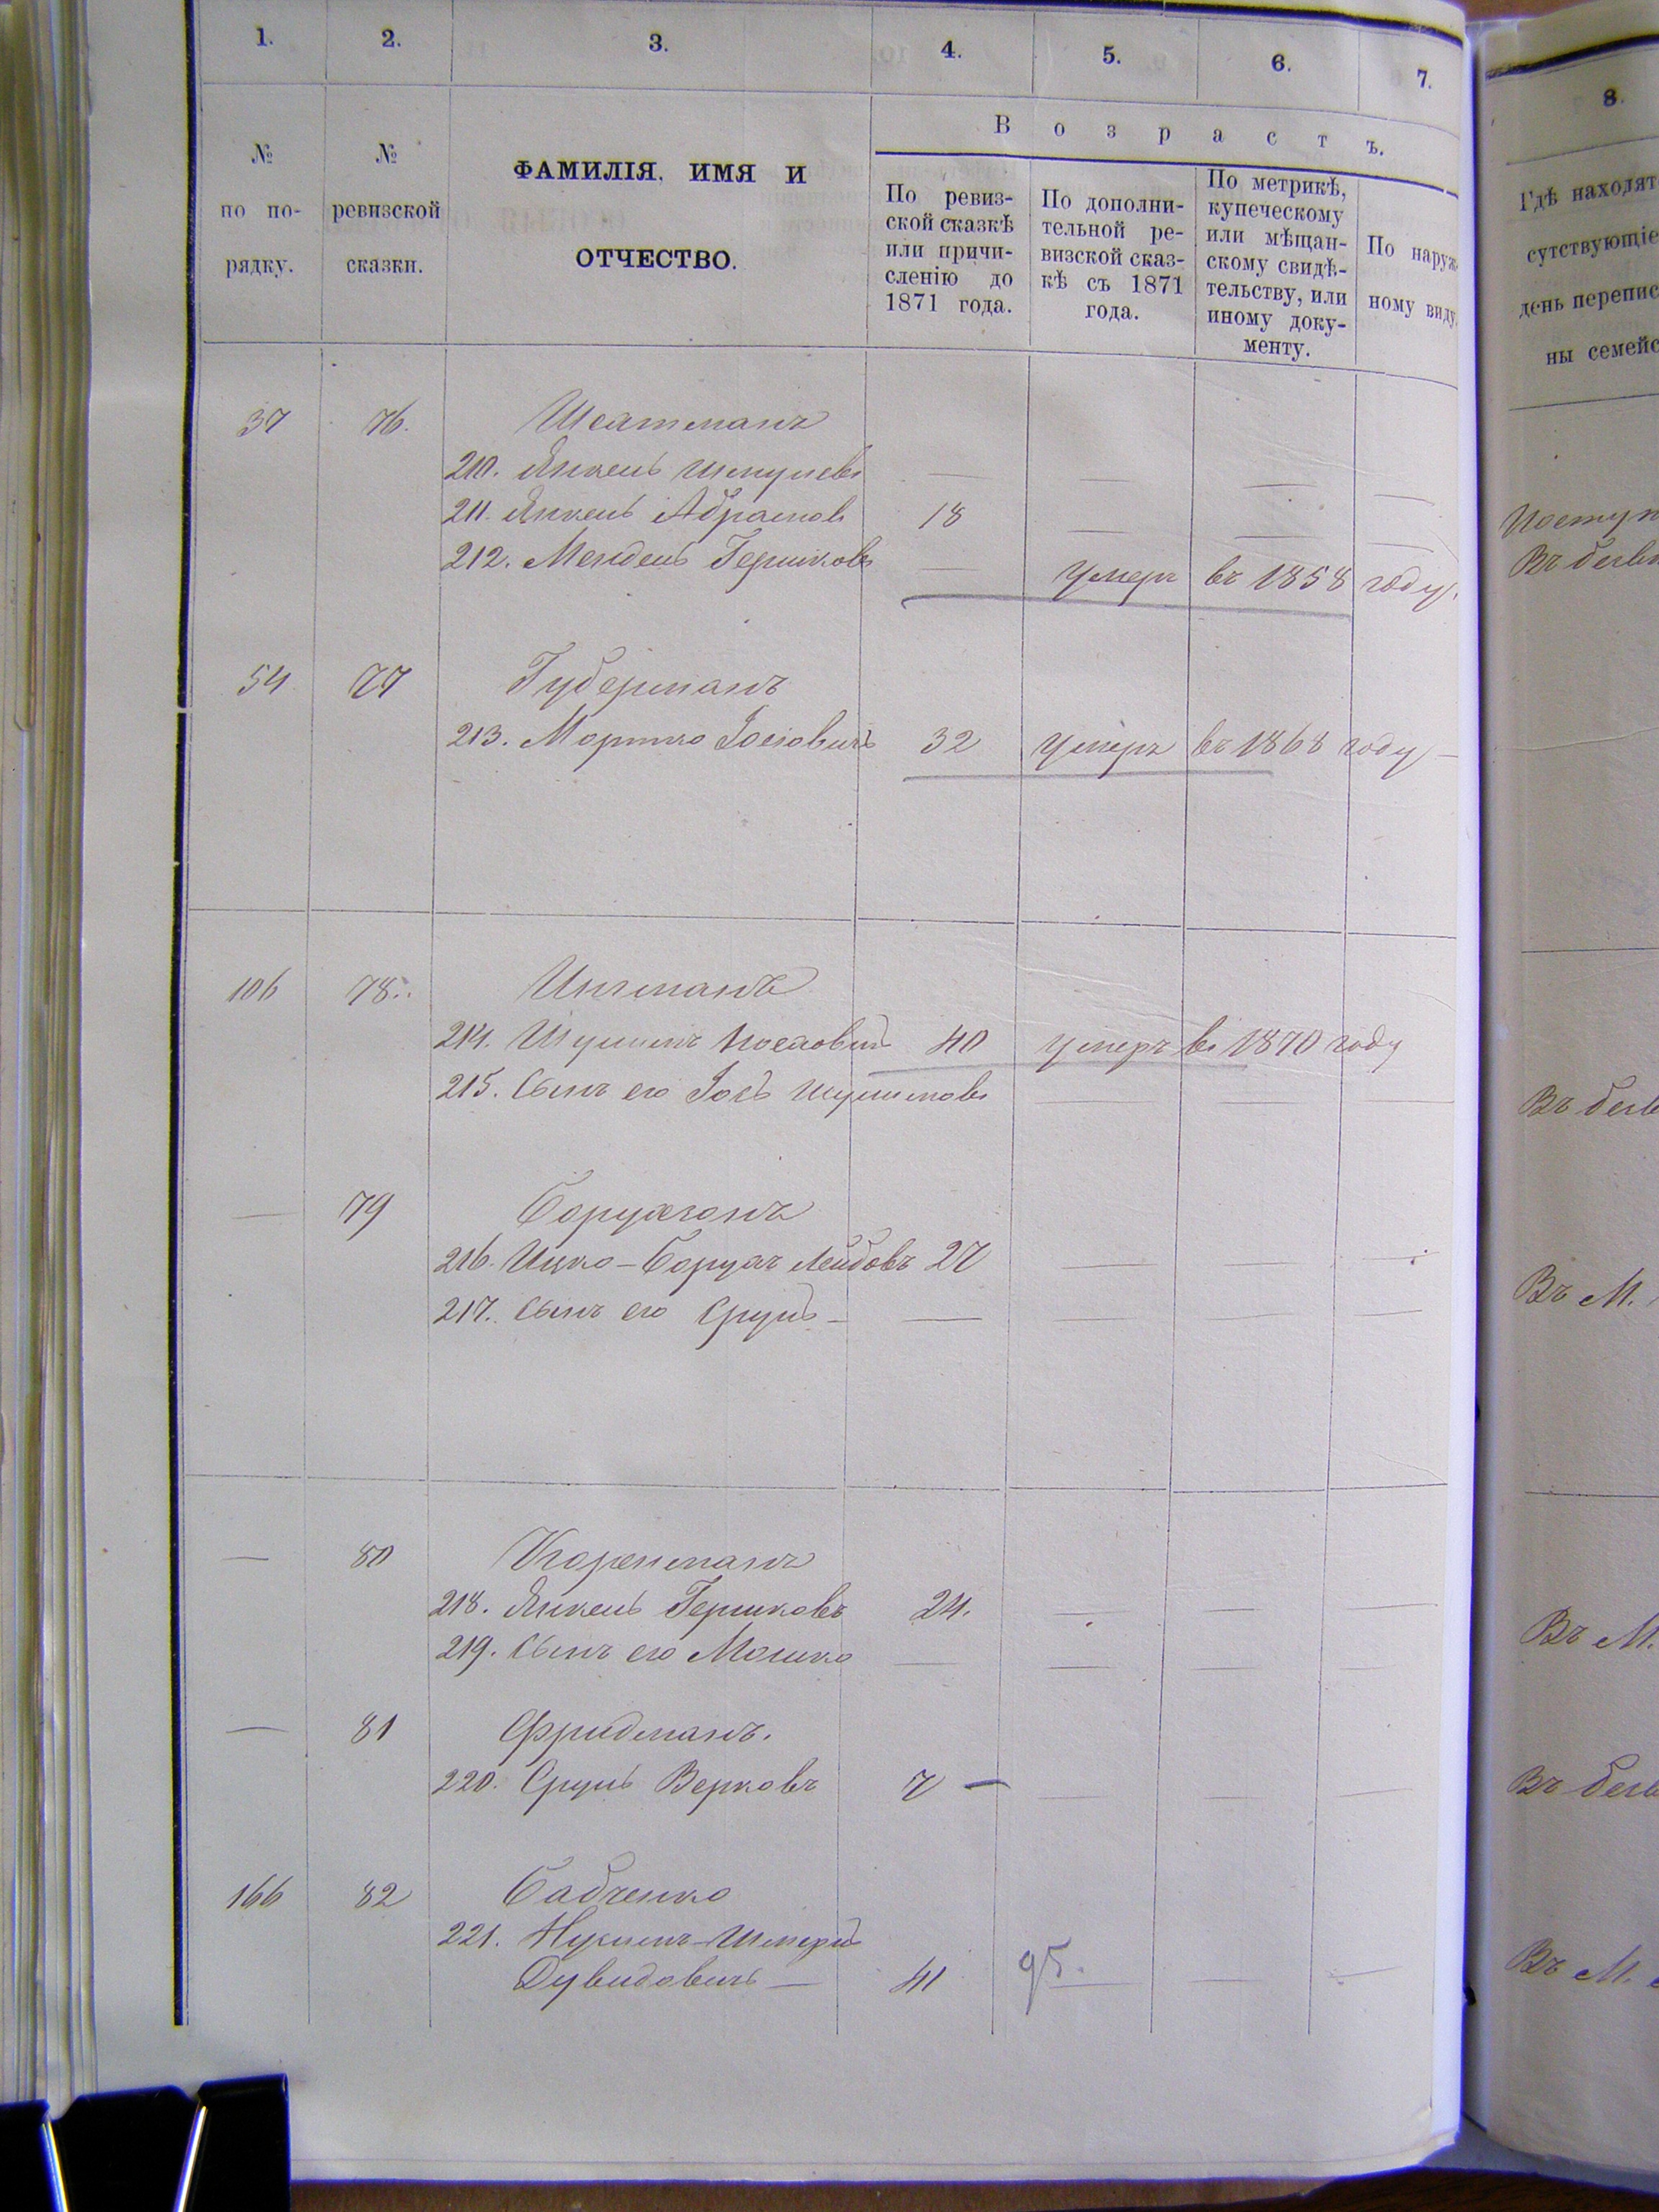 1. 2. 3. 4. 5. 6. 7.
№ по по-рядку.
№ ревизской сказки.
ФАМИЛІЯ, ИМЯ И
ОТЧЕСТВО.
Возрастъ.
По ревиз-
ской сказкѣ
или причи-
сленію до
1871 года.
По дополни-
тельной ре-
визской сказ-
кѣ съ 1871
года.
По метрикѣ,
купеческому
или мѣщан-
скому свидѣ-
тельству, или
иному доку-
менту.
По наруж-
ному виду.
37 76.
210. Янкель Шмулевъ — — — —
211. Янкель Абрамовъ 18 — — —
212. Мендель Гершковъ — Умеръ въ 1858 году.
54 77 Губерманъ
213. Мортко Іосіовичъ 32 Умеръ въ 1868 году —
106 78.
214. 40 умеръ въ 1870 году
215. Сынъ его Іось — — —
— 79
216. Ицко-Борухъ Лейбовъ 27 — — —
217. Сынъ его Сруль — — — — —
— 80 Коренманъ
218. Янкель Гершковъ 24. — — —
219. Сынъ его Мошко — — — —
— 81 Фридманъ.
220. Сруль Берковъ 7 — — — —
166 82 Бабченко
221. Нухимъ-Шмерль
Дувидовичъ — 41 95. — —
8.
Гдѣ находят
сутствующіе
день перепис
ны семейс
Поступ
Въ
Въ
Въ М.
Въ М.
Въ
Въ М.